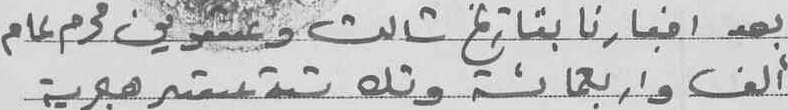 بعد اخبارنا بتاريخ ثالث وعشرين محرم عام
ألف واربعمائة وثلاثة عشر هجرية